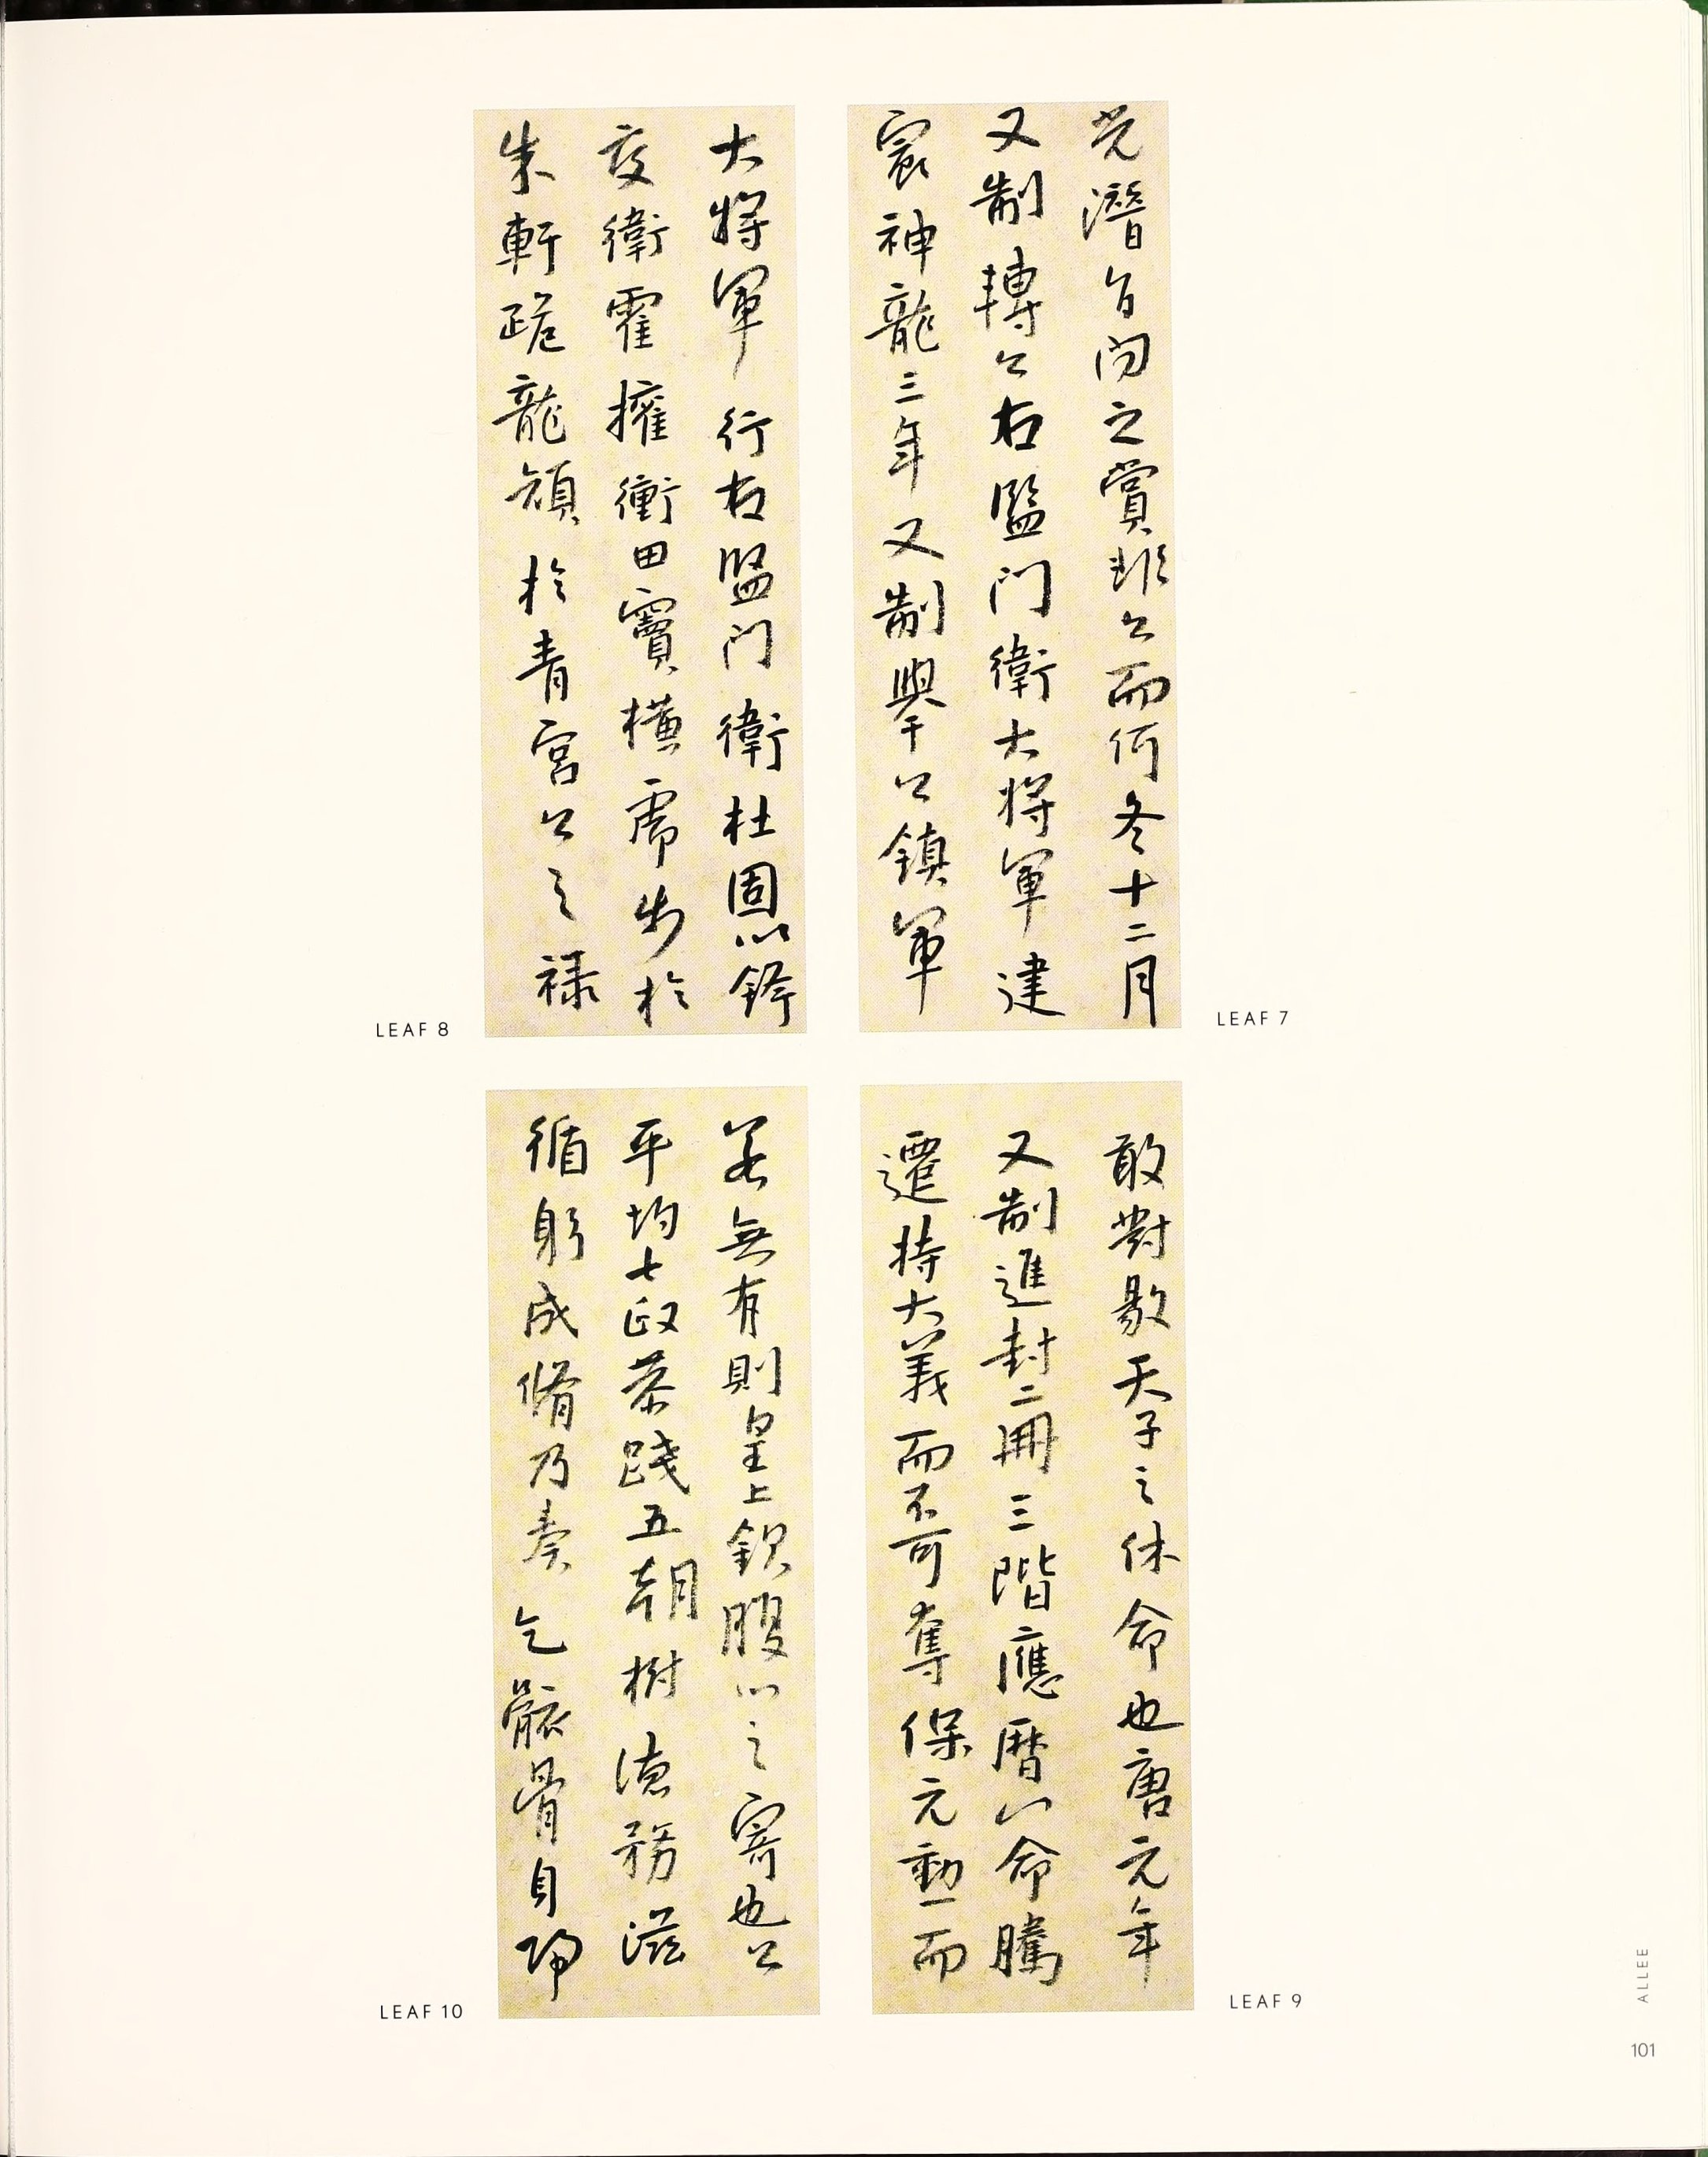 潛旨闭之賞非公而何冬十二月
又制轉公右監门衛大將軍建
宸神龍三年又制舉公鎮軍
LEAF 7
大將軍行右監门衛杜固以鋒
交衛霍擁衝田竇橫虎步於
朱軒跪龍頷於青宮公之祿
LEAF 8
敢對敭天子之休命也唐元年
又制進封二冊三階應曆以命騰
遷持大義而不可奪保元勳而
LEAF 9
若無有則皇上欽服以之寄也公
平均七政恭踐五朝樹德務滋
循躬成脩乃奏乞骸骨自歸
LEAF 10
ALLEE
101